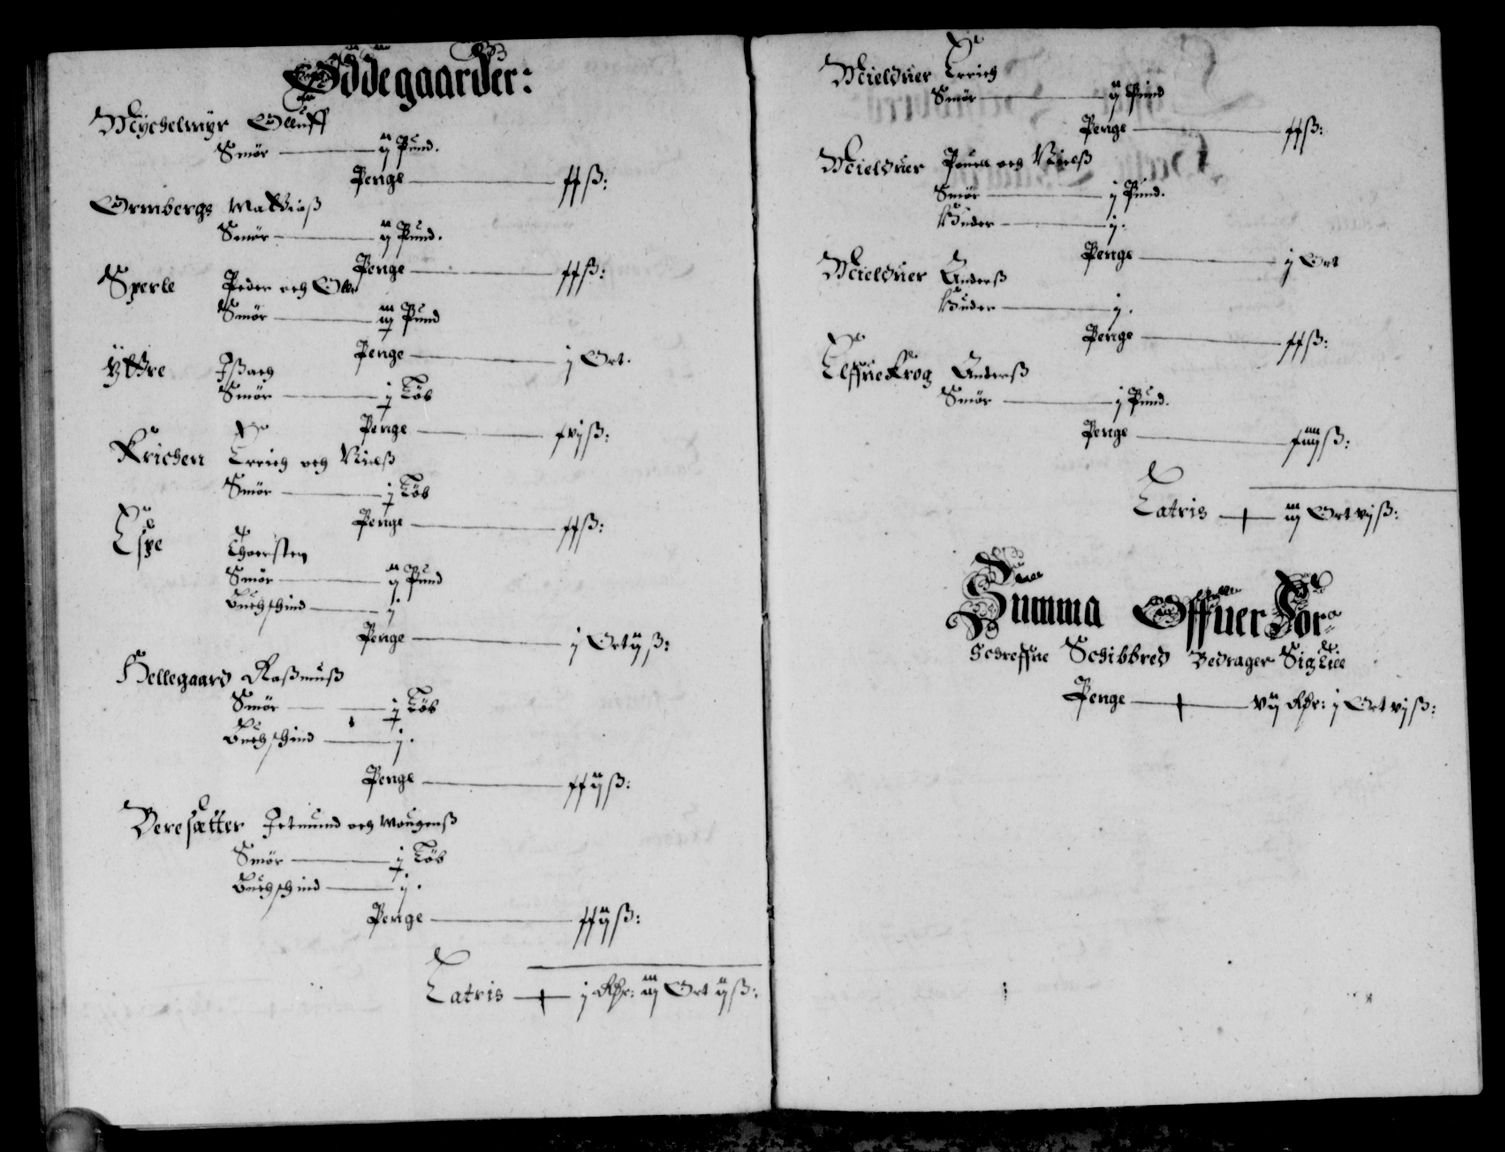 Øddegaarder:
Mychelmyr Oluff
Smør — ij Pund.
Penge — xx ß:
Ormberg Mathias
Smør — ij Pund.
Penge — xx ß:
Sperle Peder och Olle
Smør — iij Pund
Penge — j Ort.
Yttre Jßach
Smør — j Løb
Penge — xvj ß:
Krichen Errich och Nielß
Smør — j Løb
Penge — xx ß:
Espe Thorsten
Smør — ij Pund
Buchschind — j
Penge — j Ort ij ß:
Hellegaard Raßmuß
Smør — j Løb
Buchschind — j.
Penge — xxij ß:
Beresætter Jetmund och Mougenß
Smør — j Løb
Buchschind — j.
Penge — xxij ß:
Latris — j Rdr: iij Ort ij ß:
Mielduer Errich
Smør — ij Pund
Penge — xx ß:
Mielduer Pouell och Nielß
Smør — j Pund.
Huder — j.
Penge — j Ort
Mielduer Anderß
Huder — j.
Penge — xx ß:
Elffuekrog Anderß
Smør — j Pund.
Penge — xiiij ß:
Latris — iij Ort vj ß:
Summa Offuer For-
schreffne Schibbred Bedrager Sig till
Penge — vij Rdr: j Ort vj ß: